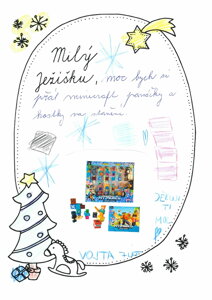 Milý
Ježíšku, moc bych si
přál minecraft panáčky a
kostky na stavění.
DĚKUJI
TI
MOC
VOJTA 7